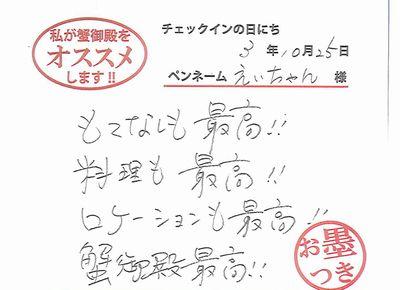 私が蟹御殿を
オススメ
します!!
チェックインの日にち
3 年 10 月 25 日
ペンネーム えぃちゃん 様
もてなしも 最高!!
料理も 最高!!
ロケーションも最高!!
蟹御殿最高!!
お墨
つき